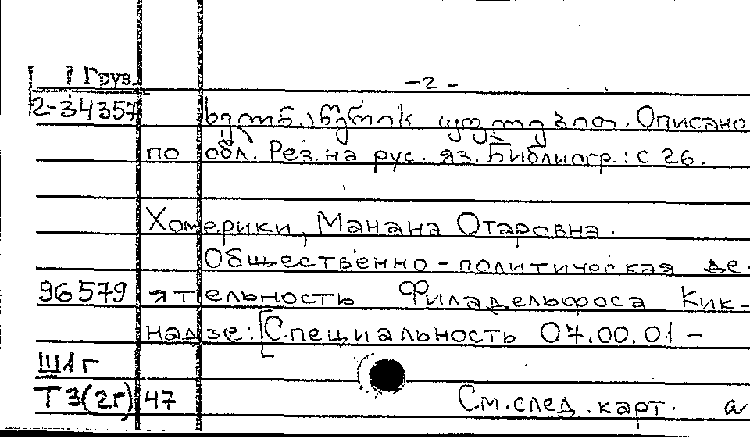 Груз. -2-
2-34357 Описано
по обл. Рез. на рус. яз. Библиогр.: с 26.
Хомерики, Манана Отаровна.
Общественно-политическая де-
96579 ятельность Филадельфоса Кик-
надзе: [Специальность 07.00.01 -
Ш1г
Т3(2г) 47 См. след. карт. а